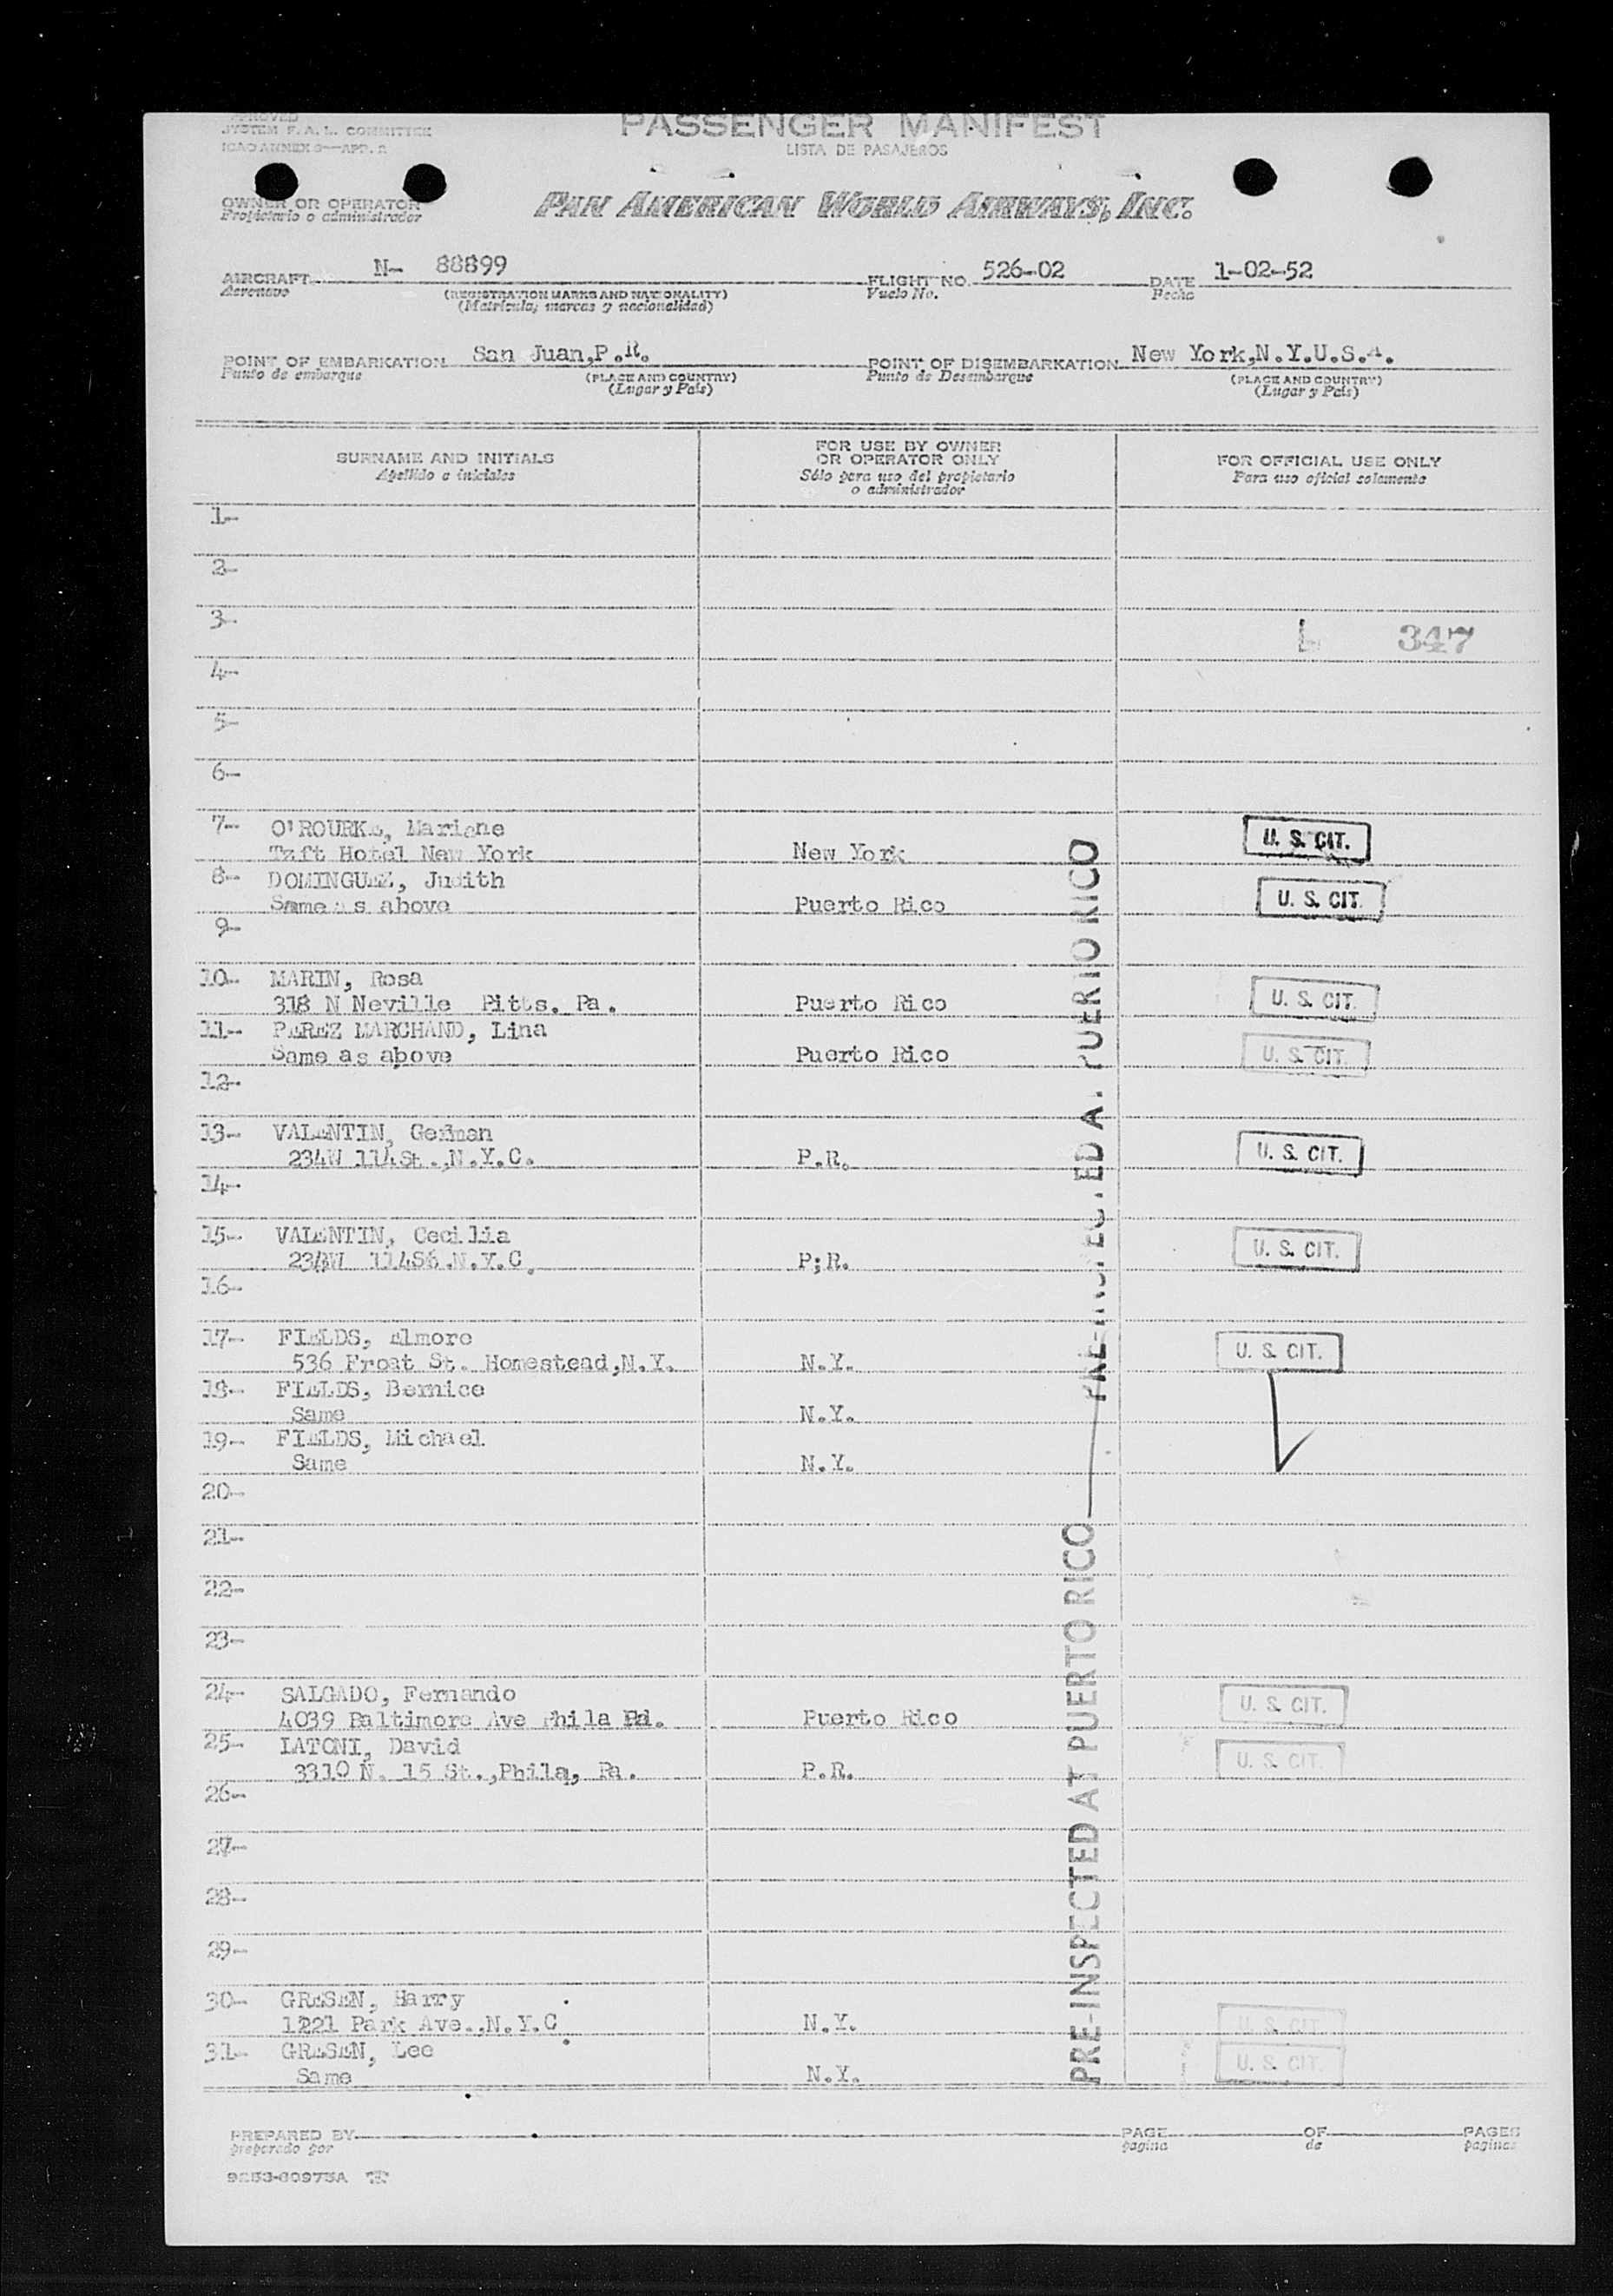 APPROVED
SYSTEM F. A. L. COMMITTEE
ICAO ANNEX 9—APP. 2
PASSENGER MANIFEST
LISTA DE PASAJEROS
OWNER OR OPERATOR
Propietario o administrador
PAN AMERICAN WORLD AIRWAYS, INC.
AIRCRAFT N- 88899 FLIGHT NO. 526-02 DATE 1-02-52
Aeronave (REGISTRATION MARKS AND NATIONALITY) Vuelo No. Fecha
(Matrícula, marcas y nacionalidad)
POINT OF EMBARKATION San Juan,P.R. POINT OF DISEMBARKATION New York,N.Y.U.S.A.
Punto de embarque (PLACE AND COUNTRY) Punto de Desembarque (PLACE AND COUNTRY)
(Lugar y País) (Lugar y País)
SURNAME AND INITIALS
Apellido e iniciales
FOR USE BY OWNER
OR OPERATOR ONLY
Sólo para uso del propietario
o administrador
FOR OFFICIAL USE ONLY
Para uso oficial solamente
1-
2-
3-
L 347
4-
5-
6-
7- O'ROURKE, Mariene
Taft Hotel New York New York U. S. CIT.
8- DOMINGUEZ, Judith
Same as above Puerto Rico U. S. CIT.
9-
10- MARIN, Rosa
318 N Neville Pitts. Pa. Puerto Rico U. S. CIT.
11- PEREZ MARCHAND, Lina
Same as above Puerto Rico U. S. CIT.
12-
13- VALENTIN, German
234W 114St.,N.Y.C. P.R. U. S. CIT.
14-
15- VALENTIN, Cecilia
234W 114St.N.Y.C. P;R. U. S. CIT.
16-
17- FIELDS, Elmore
536 Front St. Homestead,N.Y. N.Y. U. S. CIT.
18- FIELDS, Bernice
Same N.Y.
19- FIELDS, Michael
Same N.Y.
20-
21-
22-
23-
24- SALGADO, Fernando
4039 Baltimore Ave Phila Pa. Puerto Rico U. S. CIT.
25- LATONI, David
3310 N. 15 St.,Phila, Pa. P.R. U. S. CIT.
26-
27-
28-
29-
30- GRESEN, Harry
1221 Park Ave.,N.Y.C. N.Y. U. S. CIT.
31- GRESEN, Lee
Same N.Y. U. S. CIT.
PRE-INSPECTED AT PUERTO RICO
PRE-INSPECTED AT PUERTO RICO
PREPARED BY PAGE OF PAGES
preparado por pagina de paginas